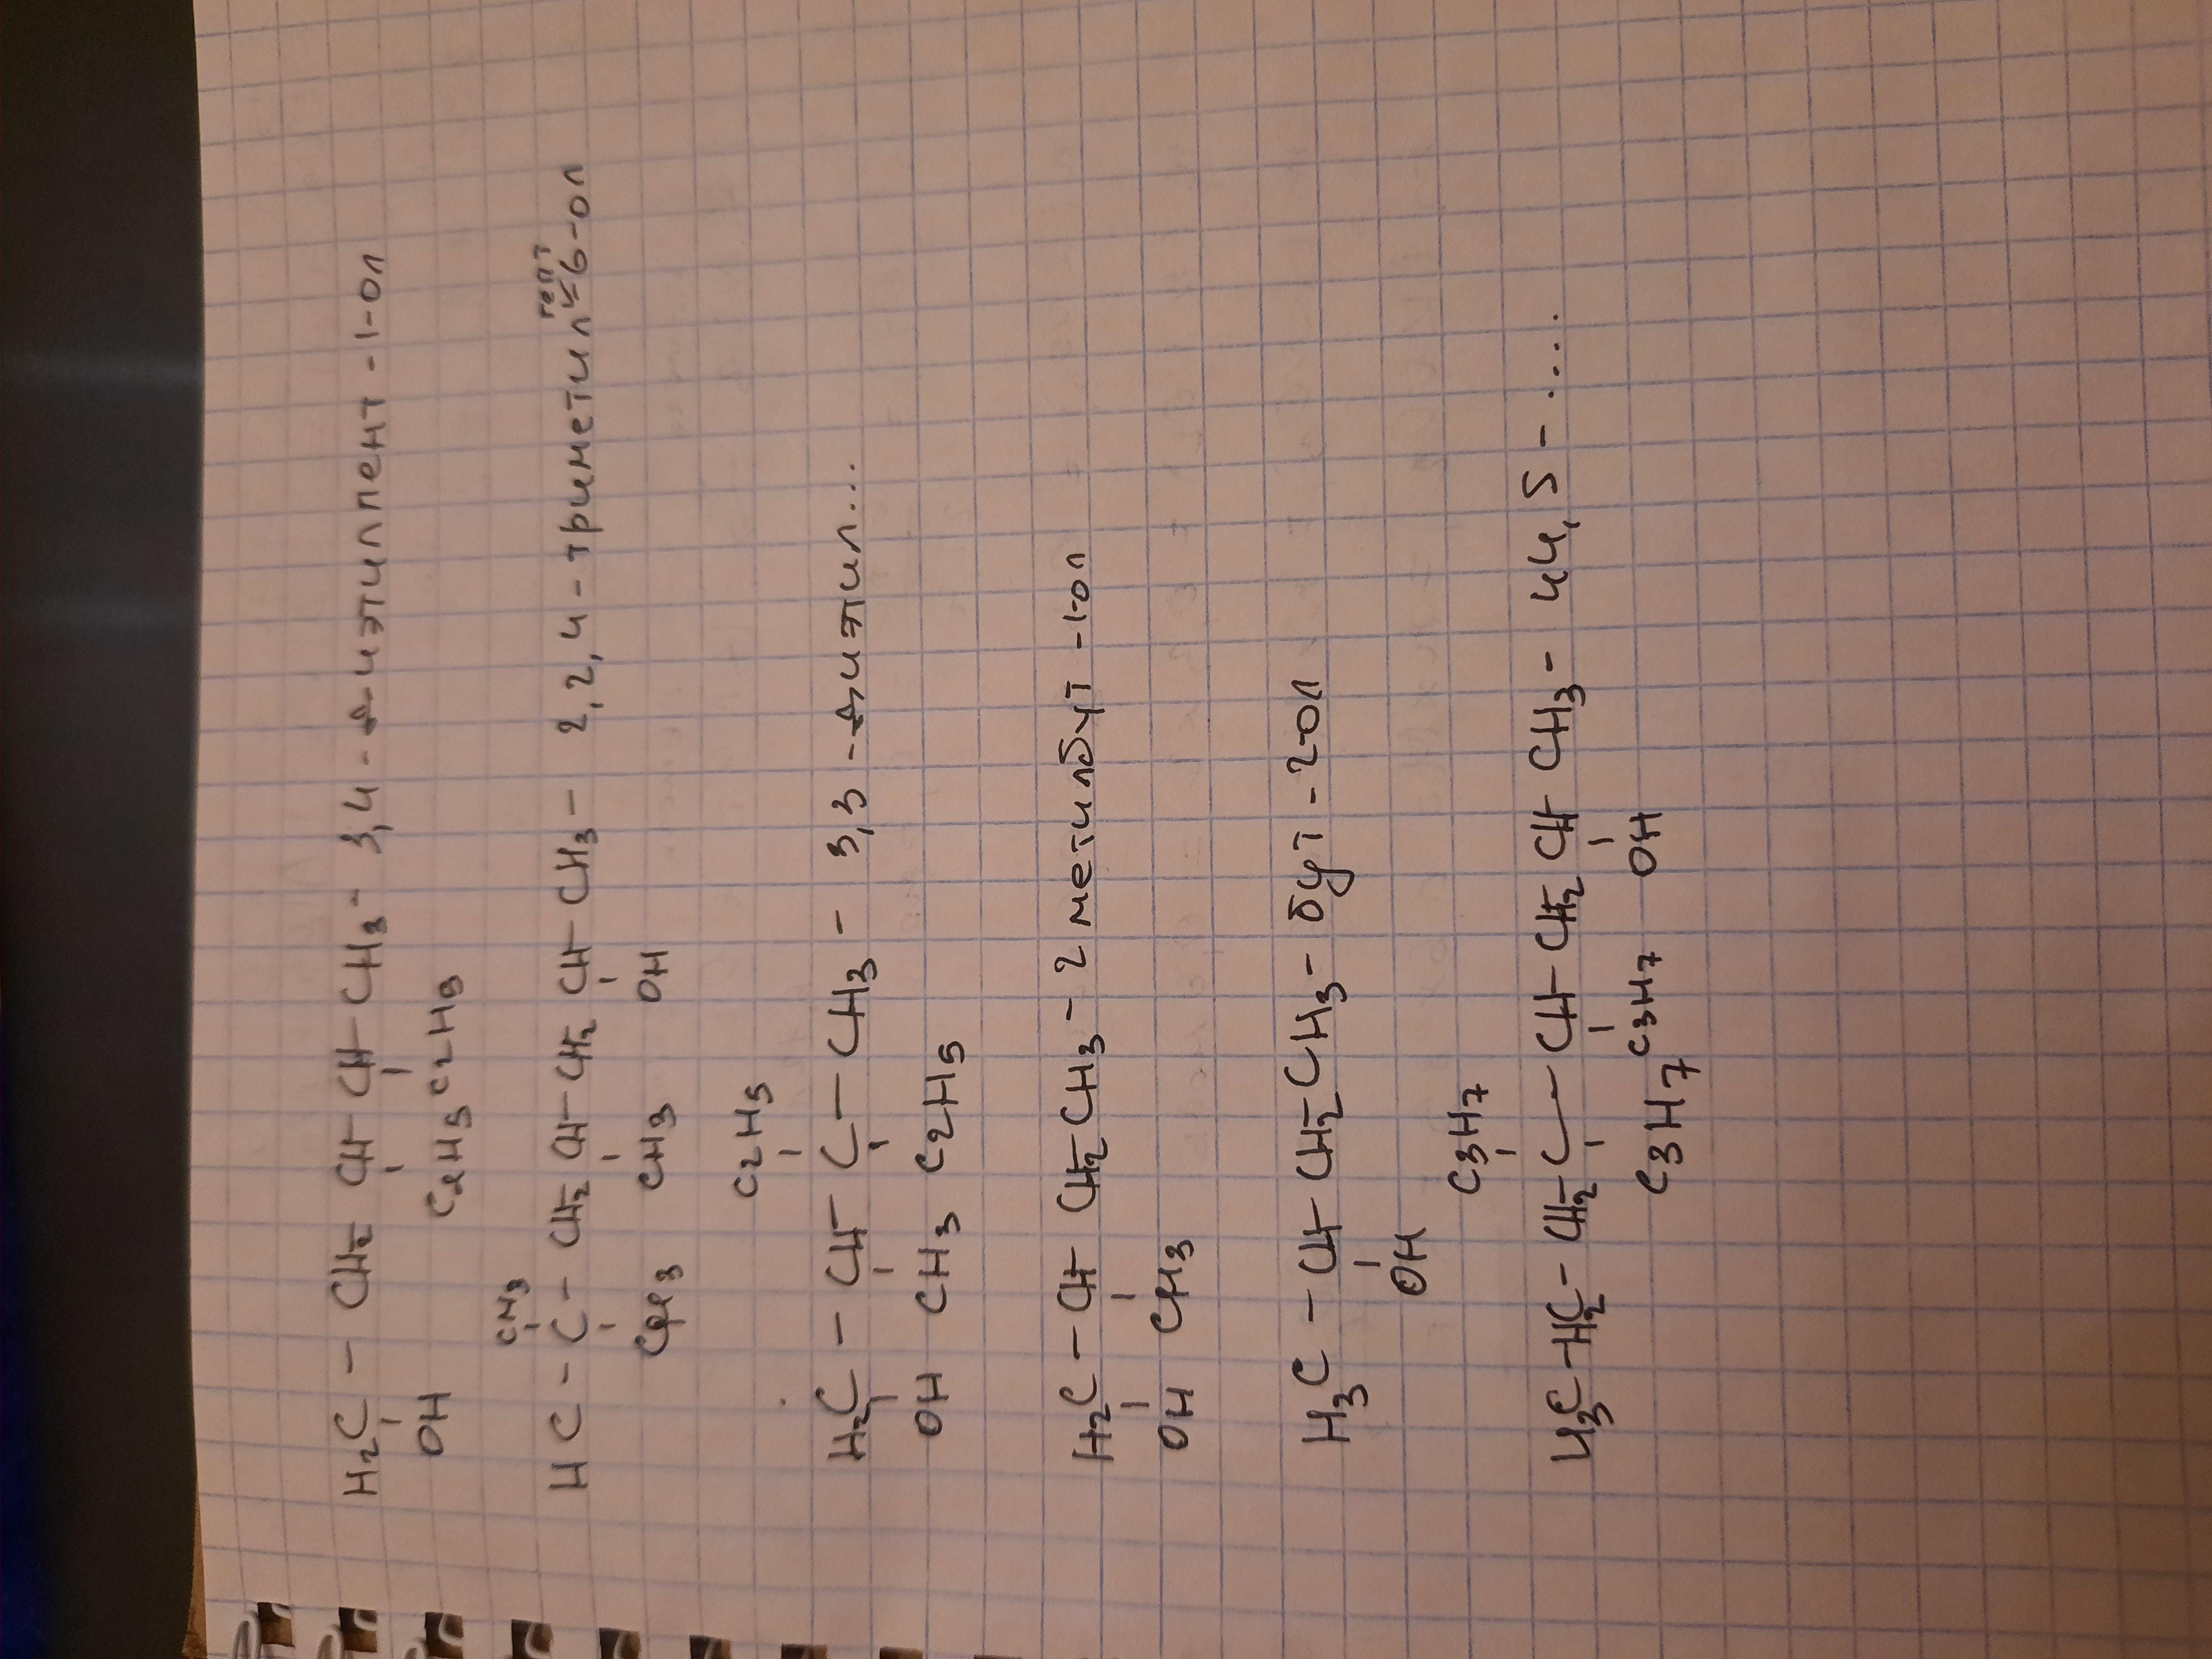 H₂C – CH₂ – CH – CH – CH₃ - 3,4-диэтилпент-1-ол
OH C₂H₅ C₂H₅
CH₃
HC – C – CH₂ – CH – CH₂ – CH – CH₃ – 2,2,4-триметил гепт 6-ол
CH₃ CH₃ OH
C₂H₅
H₂C – CH – C – CH₃ – 3,3-диэтил...
OH CH₃ C₂H₅
H₂C – CH – CH₂ – CH₃ – 2 метилбут-1-ол
OH CH₃
H₃C – CH – CH₂ – CH₃ – бут-2-ол
OH
C₃H₇
H₃C – H₂C – CH₂ – C – CH – CH₂ – CH – CH₃ – 44,5-....
C₃H₇ C₃H₇ OH